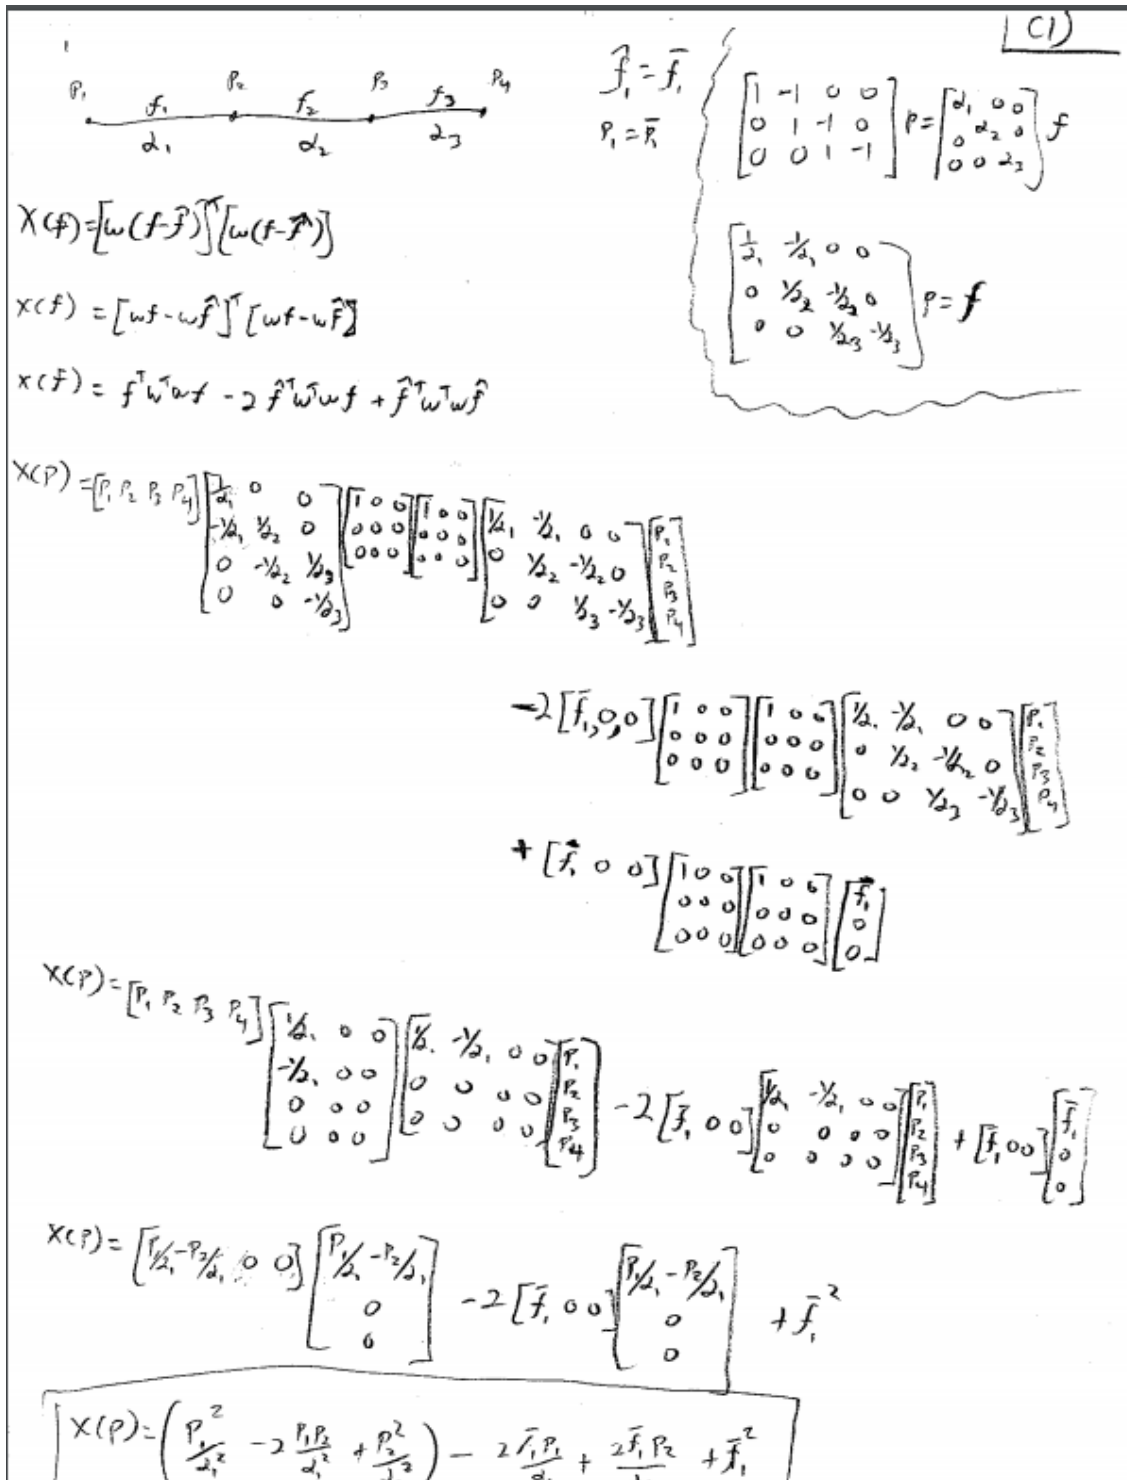 C1)
P₁ P₂ P₃ P₄
f₁ f₂ f₃
α₁ α₂ α₃
f̂₁ = f̄₁
P₁ = P̄₁
[1 -1 0 0; 0 1 -1 0; 0 0 1 -1] P = [α₁ 0 0; 0 α₂ 0; 0 0 α₃] f
[1/α₁ -1/α₁ 0 0; 0 1/α₂ -1/α₂ 0; 0 0 1/α₃ -1/α₃] P = f
X(f) = [w(f-f̂)]ᵀ[w(f-f̂)]
X(f) = [wf-wf̂]ᵀ[wf-wf̂]
X(f) = fᵀwᵀwf - 2f̂ᵀwᵀwf + f̂ᵀwᵀwf̂
X(P) = [P₁ P₂ P₃ P₄][1/α₁ 0 0; -1/α₁ 1/α₂ 0; 0 -1/α₂ 1/α₃; 0 0 -1/α₃][1 0 0; 0 0 0; 0 0 0][1 0 0; 0 0 0; 0 0 0][1/α₁ -1/α₁ 0 0; 0 1/α₂ -1/α₂ 0; 0 0 1/α₃ -1/α₃][P₁; P₂; P₃; P₄]
-2[f̄₁,0,0][1 0 0; 0 0 0; 0 0 0][1 0 0; 0 0 0; 0 0 0][1/α₁ -1/α₁ 0 0; 0 1/α₂ -1/α₂ 0; 0 0 1/α₃ -1/α₃][P₁; P₂; P₃; P₄]
+[f̄₁ 0 0][1 0 0; 0 0 0; 0 0 0][1 0 0; 0 0 0; 0 0 0][f̄₁; 0; 0]
X(P) = [P₁ P₂ P₃ P₄][1/α₁ 0 0; -1/α₁ 0 0; 0 0 0; 0 0 0][1/α₁ -1/α₁ 0 0; 0 0 0 0; 0 0 0 0][P₁; P₂; P₃; P₄] - 2[f̄₁ 0 0][1/α₁ -1/α₁ 0 0; 0 0 0 0; 0 0 0 0][P₁; P₂; P₃; P₄] + [f̄₁ 0 0][f̄₁; 0; 0]
X(P) = [P₁/α₁-P₂/α₁ 0 0][P₁/α₁-P₂/α₁; 0; 0] - 2[f̄₁ 0 0][P₁/α₁-P₂/α₁; 0; 0] + f̄₁²
X(P) = (P₁²/α₁² - 2 P₁P₂/α₁² + P₂²/α₁²) - 2f̄₁P₁/α₁ + 2f̄₁P₂/α₁ + f̄₁²